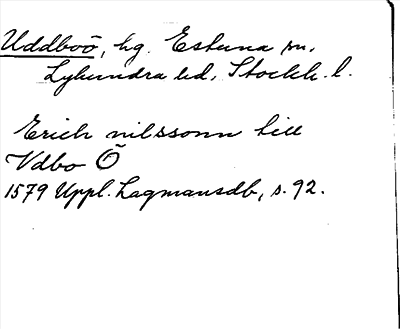 Uddboö, hg. Estuna sn,
Lyhundra hd, Stockh. l.
Erich nilssonn till
Vdbo Ö
1579 Uppl. Lagmansdb, s. 92.